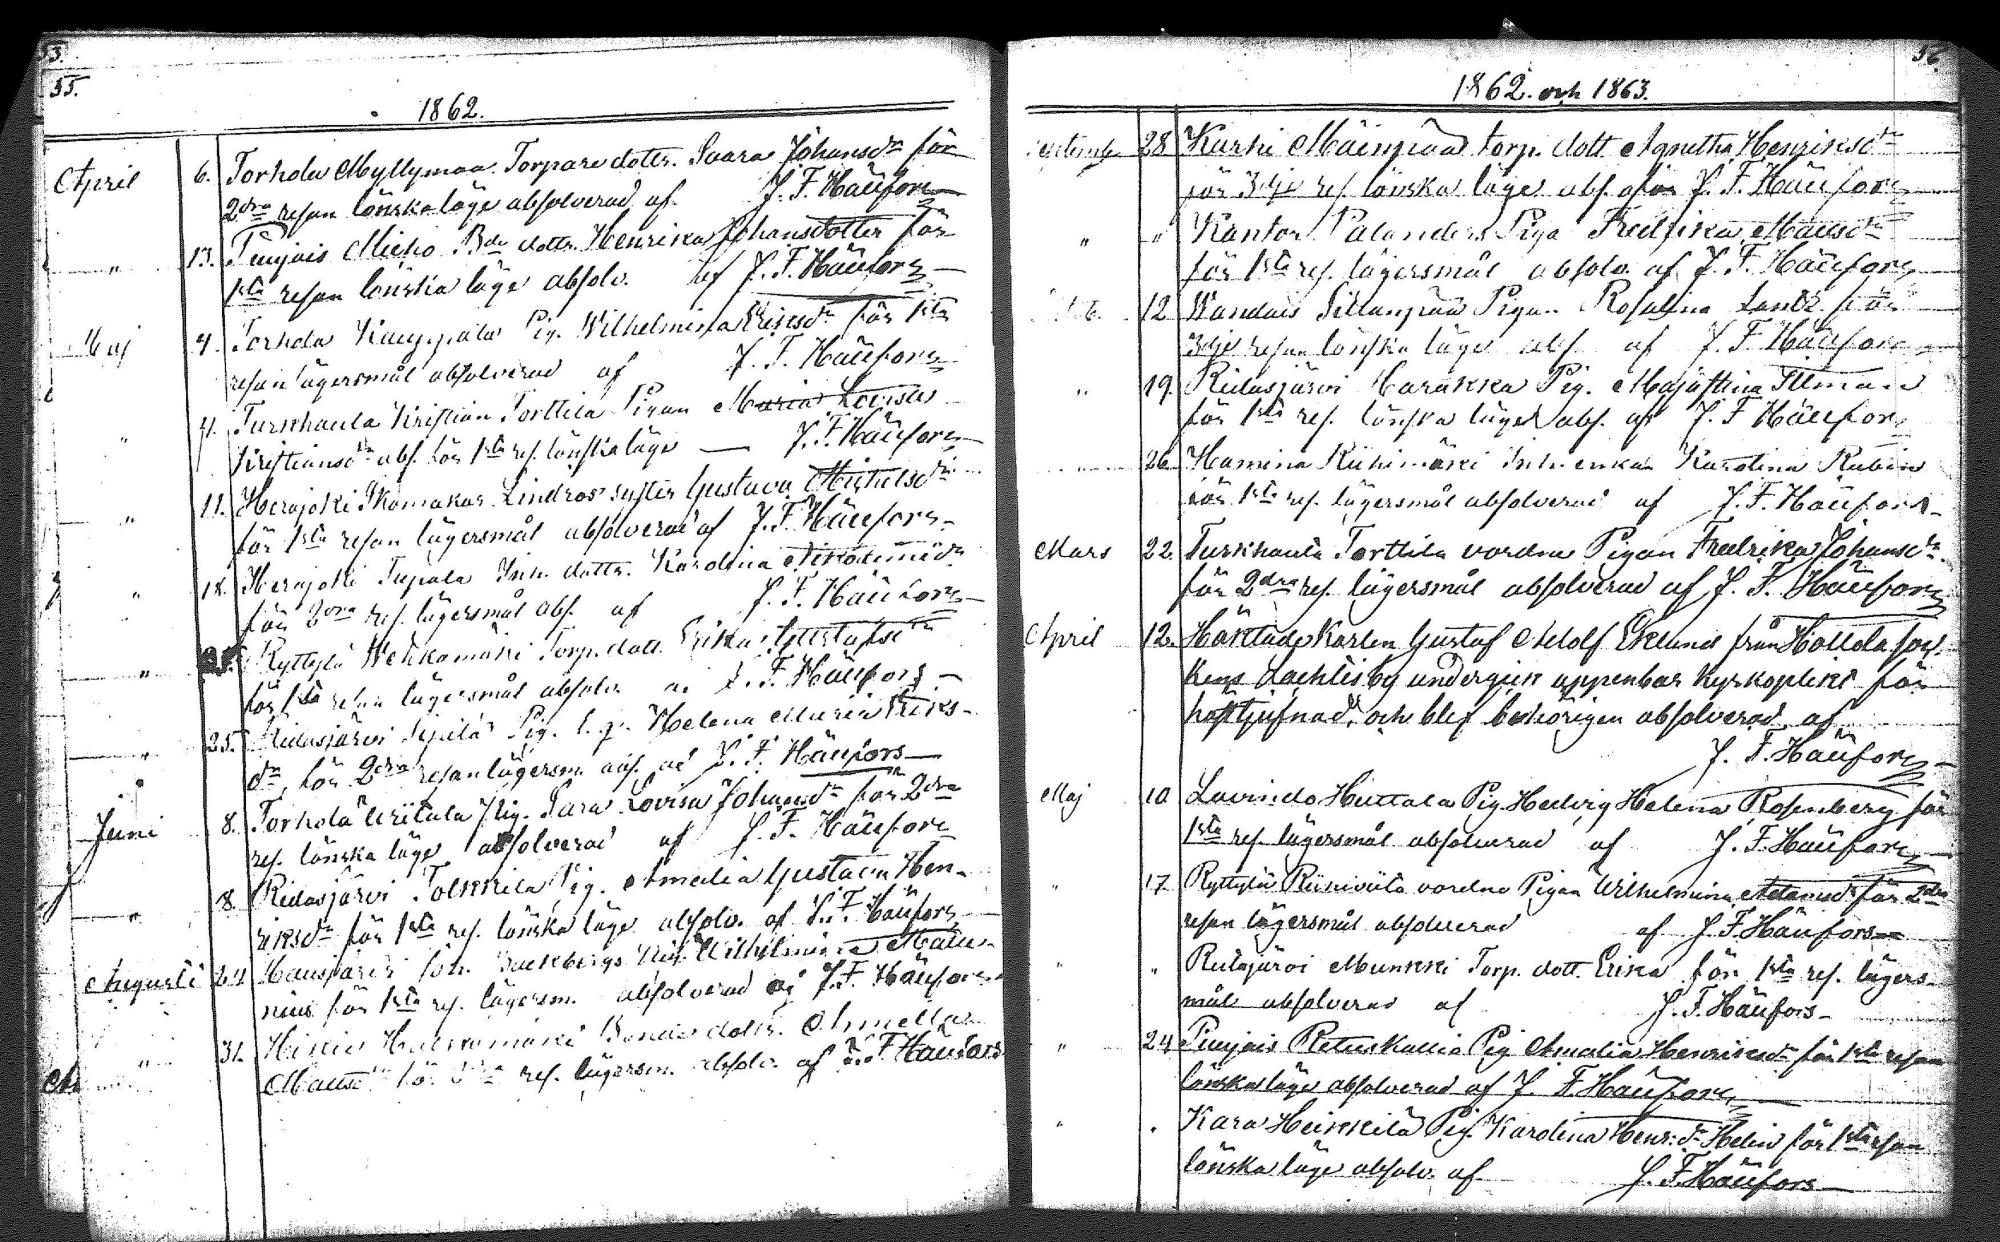 53.
55.
1862.
April 6. Torhola Myllymaa Torpare dottr. Saara Johansdr för
2dra resan lönskaläge absolverad af J. F. Häufors
" 13. Punjois Micko Bde dottr. Henrika Johansdotter för
1sta resan lönska läge absolv. af J. F. Häufors
Maj 4. Torhola Kauppala Pig. Wilhelmina Eriksdr för 1sta
resan lägersmål absolverad af J. F. Häufors
" 4. Turkhaula Kristian Torttila Pigan Maria Lovisa
Kristiansdr abs. för 1sta res. lönskaläge — J. F. Häufors
" 11. Herajoki Skomakar Lindros syster Gustava Michelsdr
för 1sta resan lägersmål absolverad af J. F. Häufors
" 18. Herajoki Tupala Inh. dottr. Karolina Nikodemidr
för 2dra res. lägersmål abs. af J. F. Häufors
" 25. Ryttylä Wehkamäki Torp. dott. Erika Gustafsdr
för 1sta resan lägersmål absolv. af J. F. Häufors
" 25. Ridasjärvi Sipilä Pig. Helena Maria Eriks-
dr, för 2dra resan lägersm. abs. af J. F. Häufors
Juni 8. Torhola Uritala Pig. Sara Lovisa Johansdr för 2dra
res. lönska läge absolverad af J. F. Häufors
" 8. Ridasjärvi Tolkkila Pig. Amalia Gustava Hen-
riksdr för 1sta res. lönska läge absolv. af J. F. Häufors
Augusti 24 Hausjärvi Backbergs Wilhelmina
för 1sta res. lägersm. absolverad af J. F. Häufors
" 31. Hikiä Bonde dottr.
Mattsdr för res. lägersm. absolv. af J. F. Häufors
56.
1862. och 1863.
September 28 Karhi Mäenpää torp. dott Agnetha Henriksdr
för 3dje res. lönska läge abs. af J. F. Häufors
" " Kantor Palanders Piga Fredrika Mattsdr
för 1sta res. lägersmål absolv. af J. F. Häufors
12 Wandais Sillanpää Pigan Rosalina Lantz för
3dje resan lönska läge abs. af J. F. Häufors
" 19. Ridasjärvi Harakka Pig. Majastina Ilman
för 1sta res. lönska läge abs. af J. F. Häufors
26 Hamina Riihimäki Inh. enkan Karolina Rubin
för 1sta res. lägersmål absolverad af J. F. Häufors
Mars 22. Turkhaula Torttila vordna Pigan Fredrika Johansdr
för 2dra res. lägersmål absolverad af J. F. Häufors
April 12. Häktade Karlen Gustaf Adolf Eklund från Hollola soc-
kens Lachtis by undergick uppenbar Kyrkoplikt för
och blef behörigen absolverad af
J. F. Häufors
Maj 10 Lavindo Huttala Pig. Hedvig Helena Rosenberg för
1sta res. lägersmål absolverad af J. F. Häufors
" 17 Ryttylä vordna Pigan Wilhelmina Adamsdr för 2dra
resan lägersmål absolverad af J. F. Häufors
" " Ridasjärvi Munkki Torp. dott. Erika för 1sta res. lägers-
mål absolverad af J. F. Häufors
" 24 Punjois Retuskallio Pig Amalia Henriksdr för 1sta resan
lönskaläge absolverad af J. F. Häufors
" " Kara Heikkilä Pig. Karolina Henr.dr Helin för 1sta resan
lönska läge absolv. af J. F. Häufors